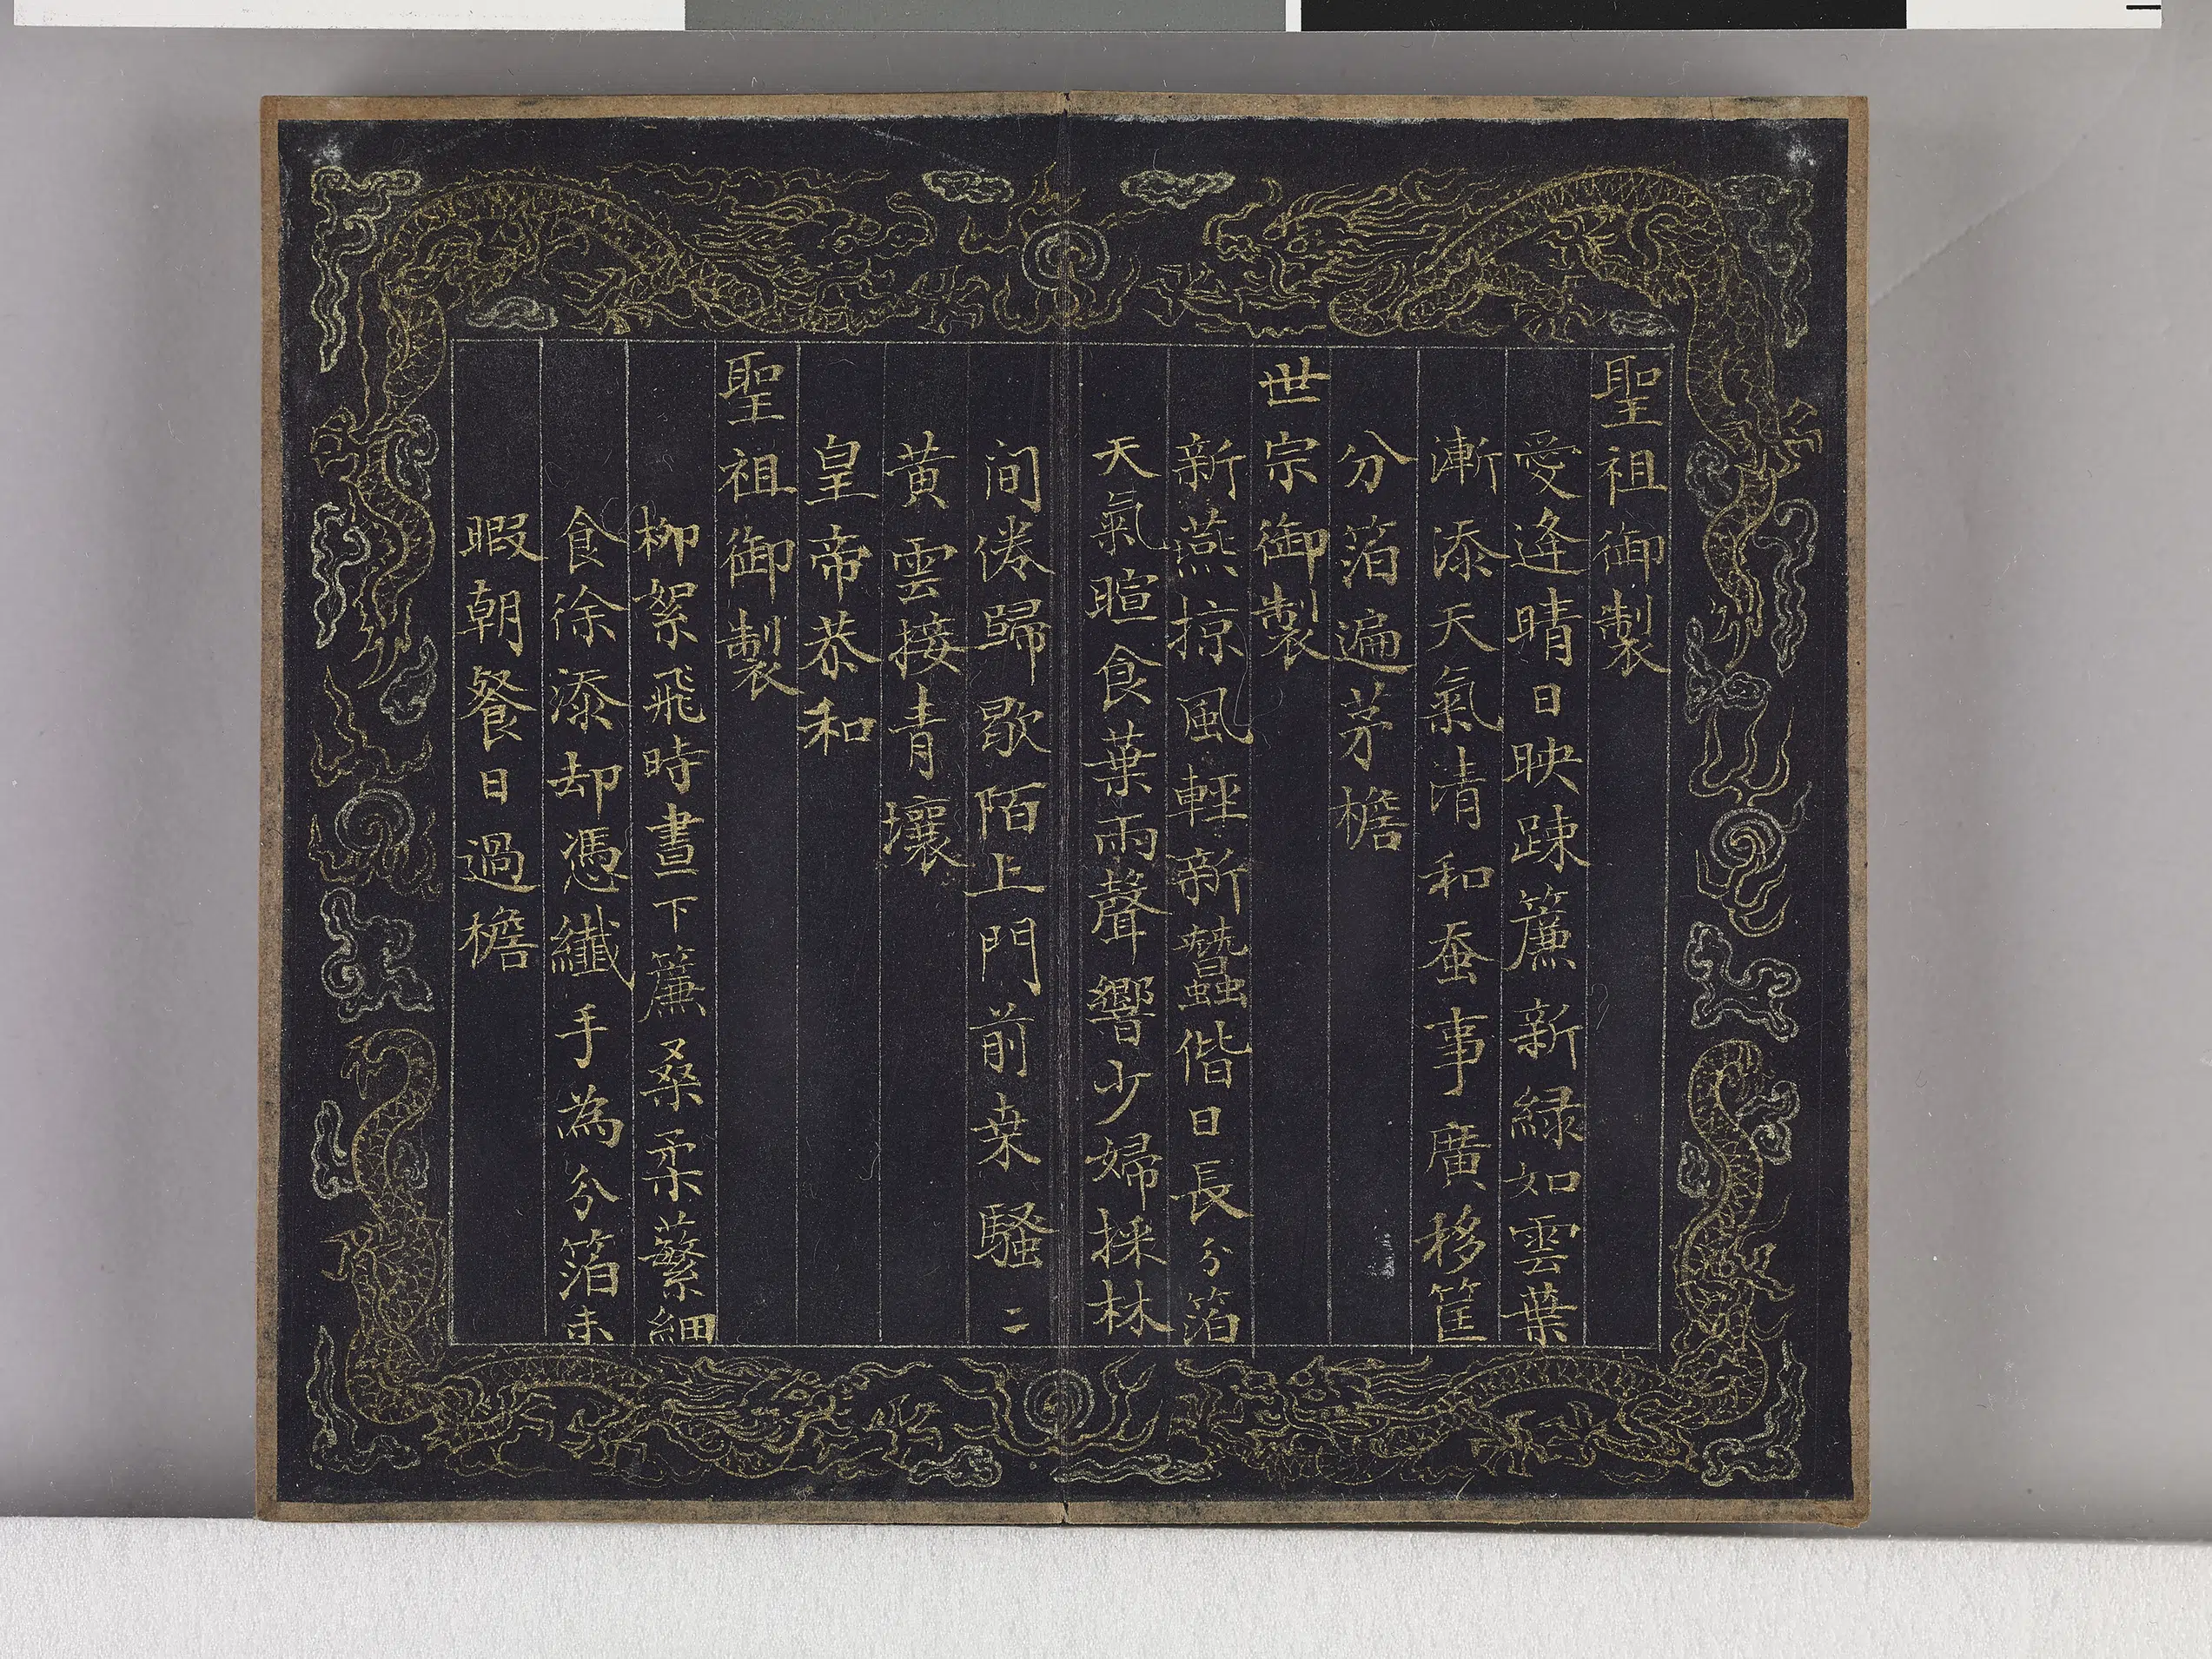 聖祖御製
愛逢晴日映踈簾新緑如雲葉
漸添天氣清和蚕事廣移筐
分箔遍茅檐
世宗御製
新燕掠風輕新蠶偕日長分箔
天氣暄食葉雨聲響少婦採林
间倦歸歇陌上門前桒騷二
黄雲接青壤
皇帝恭和
聖祖御製
柳絮飛時晝下簾桑柔蘩細
食徐添却憑纎手為分箔未
暇朝餐日過檐